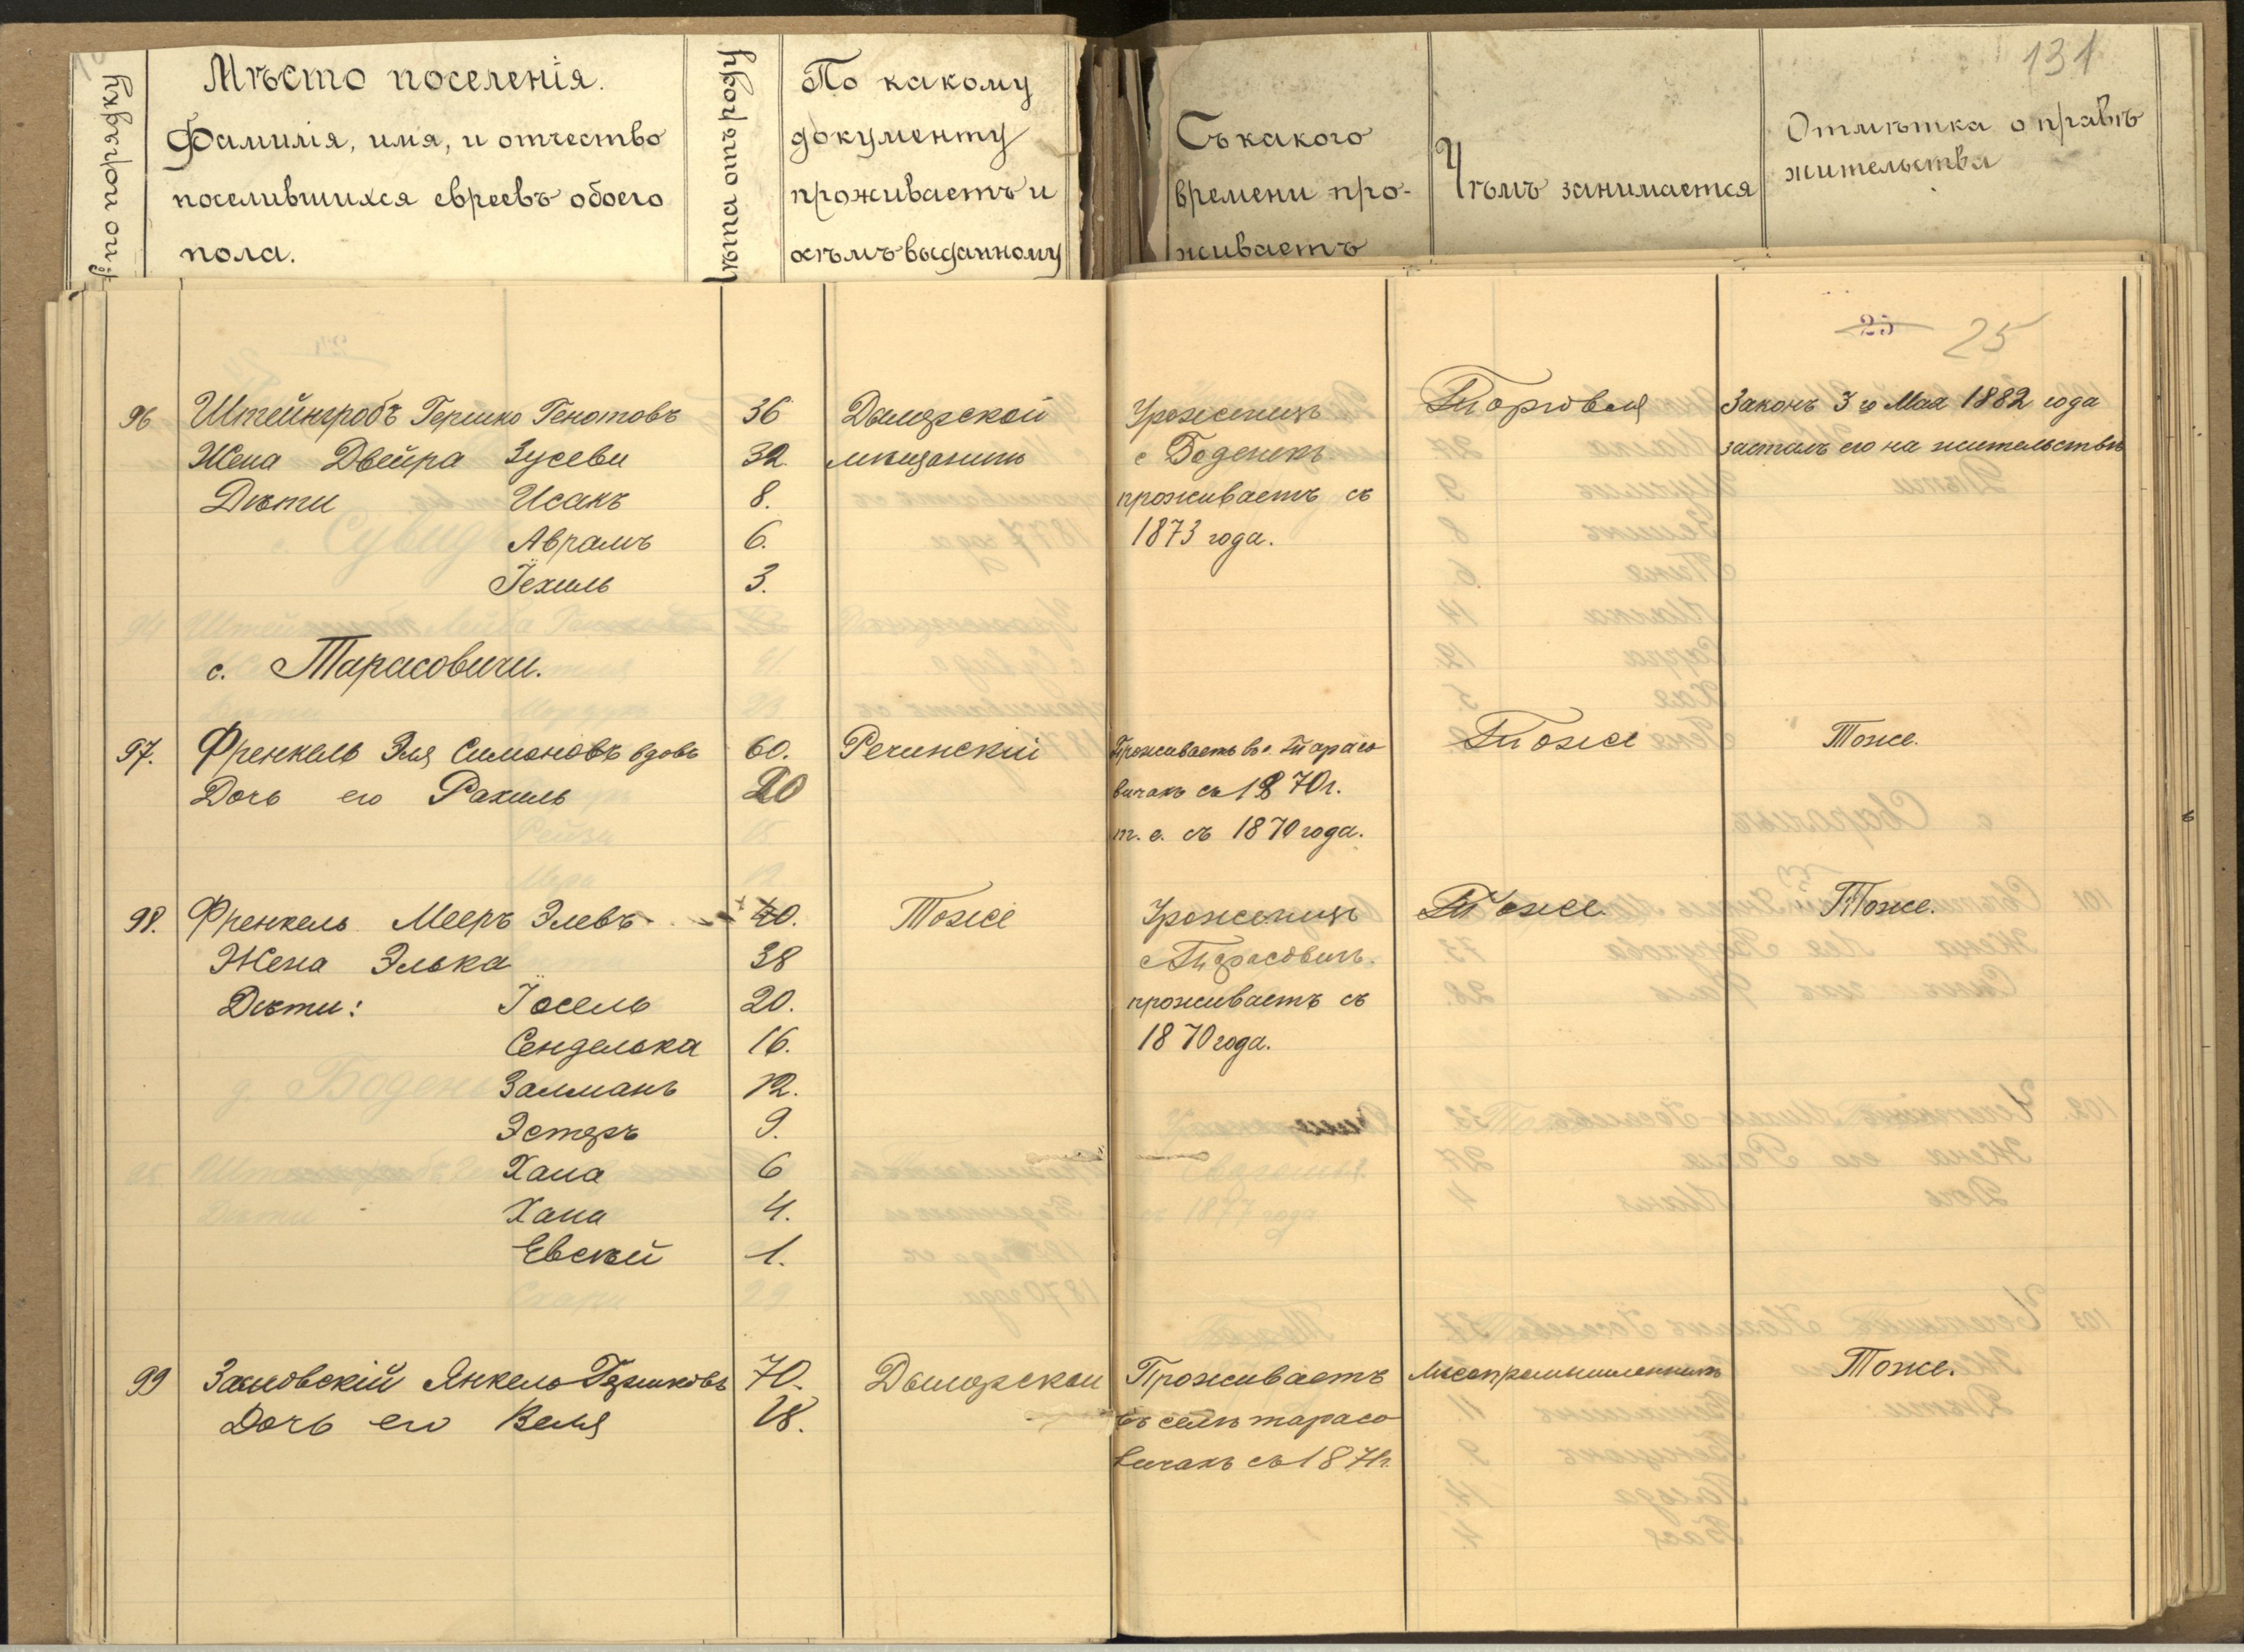 131
№ по порядку
Мѣсто поселенія.
Фамилія, имя, и отчество
поселившихся евреевъ обоего
пола.
Лѣта отъ роду
По какому
документу
проживаетъ и
кѣмъ выданному
Съ какого
времени про-
живаетъ
Чѣмъ занимается
Отмѣтка о правѣ
жительства
25 25
96 Штейнгробъ Гершко Генотовъ 36 Дымерской Уроженецъ Торговля Законъ 3го Мая 1882 года
Жена Двейра Зусеви 32. мѣщанинъ с Боденекъ засталъ его на жительствѣ
Дѣти Исакъ 8. проживаетъ съ
Аврамъ 6. 1873 года.
Іехиль 3.
с. Тарасовичи.
97. Френкель Эля Симоновъ вдовъ 60. Речинскій Проживаетъ въ с. Тарасо Тоже Тоже.
Дочь его Рахиль 20 вичахъ съ 1870 г.
т. е. съ 1870 года.
98. Френкель Мееръ Элевъ 40. Тоже Уроженецъ Тоже Тоже.
Жена Элька 38 с Тарасовичъ.
Дѣти: Іосель 20. проживаетъ съ
Сенделька 16. 1870 года.
Залманъ 12.
Эстеръ 9.
Хана 6
Хана 4.
Евсѣй 1.
99 Янкель Гершковъ 70. Дымерской Проживаетъ Лѣсопромышленникъ Тоже.
Дочь его Веля 18. въ селѣ тарасо
вичахъ съ 1871г.